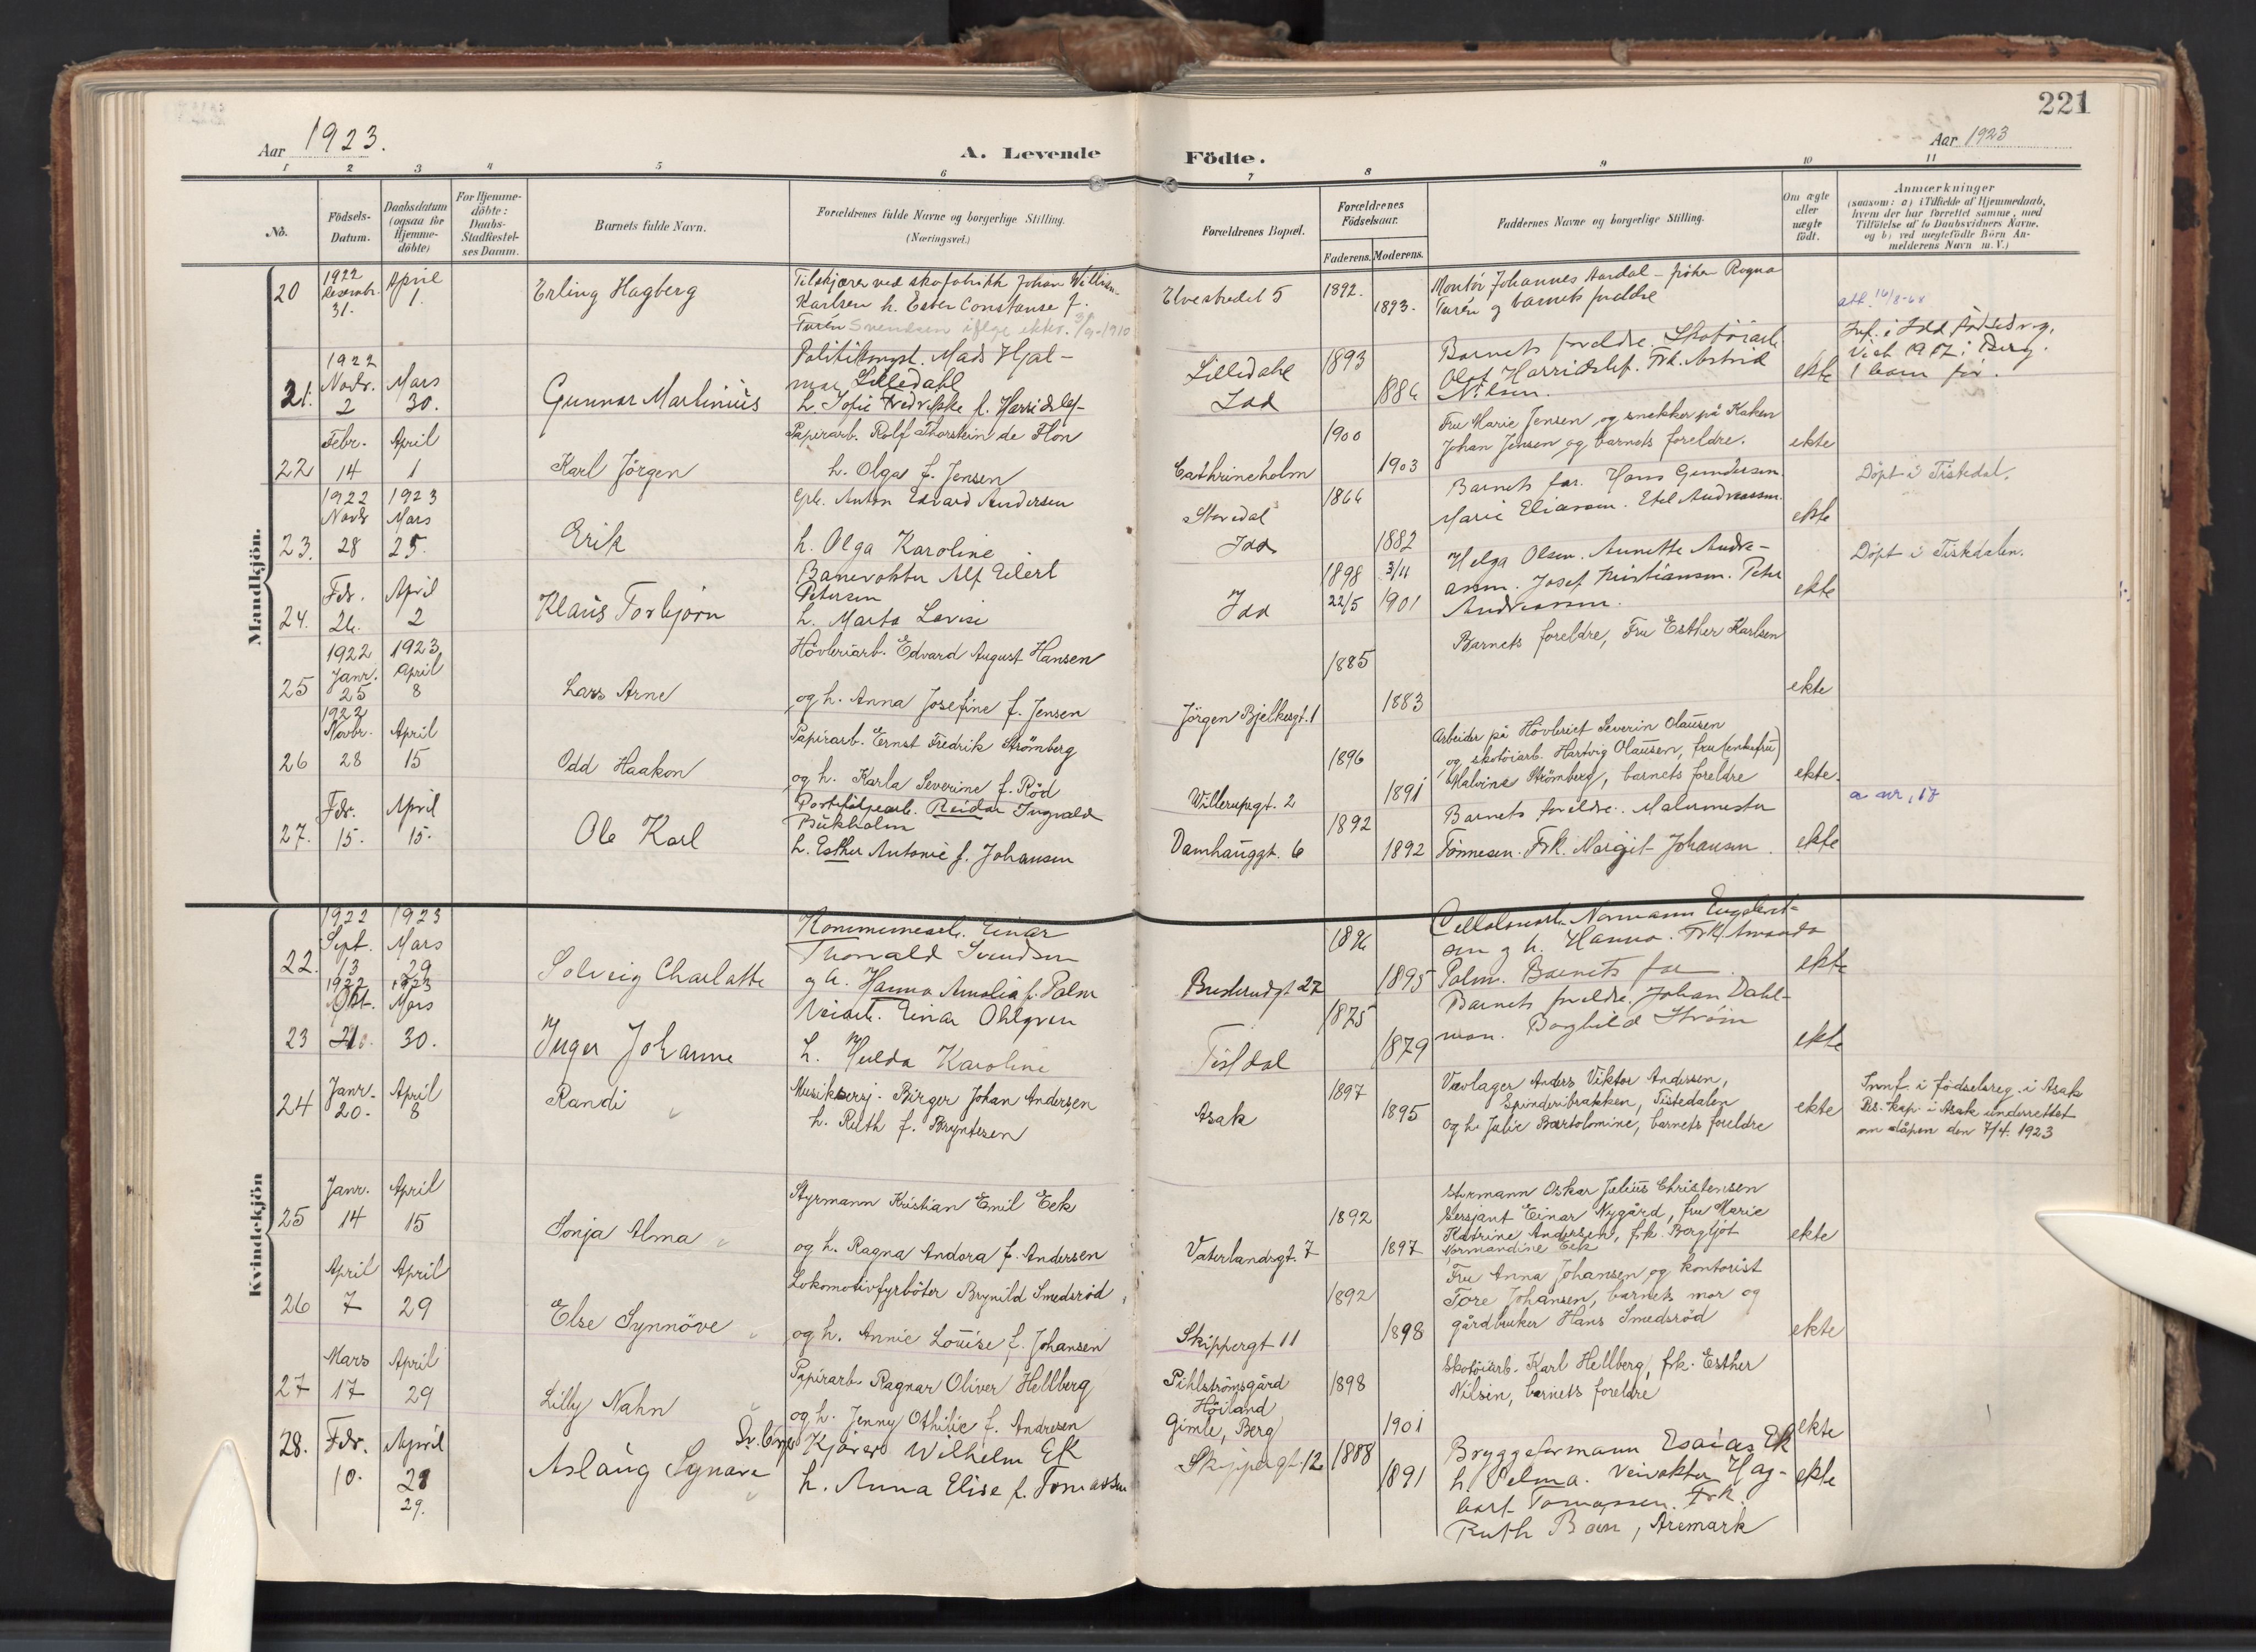 221
Aar 1923.
A. Levende
Födte.
Aar 1923
1 2 3 4 5 6 7 8 9 10 11
No.
Födsels-Datum.
Daabsdatum (ogsaa for Hjemme-döbte)
For Hjemme-döbte: Daabs-Stadfæstel-ses Datum.
Barnets fulde Navn.
Forældrenes fulde Navne og borgerlige Stilling.
(Næringsvei.)
Forældrenes Bopæl.
Forældrenes Födselsaar.
Faderens. Moderens.
Faddernes Navne og borgerlige Stilling.
Om ægte eller uægte födt.
Anmærkninger
(saasom: a) i Tilfælde af Hjemmedaab,
hvem der har forrettet samme, med
Tilföielse af to Daabsvidners Navne.
og b) ved uægtefödte Börn An-
melderens Navn m. V.)
Mandkjön.
20
1922
Desembr.
31.
April
1.
Erling Hagberg
Tilskjærer ved skofabrikk Johan
Karlsen h. Ester Constanse f.
Turén Svendsen
Elvestredet 5
1892.
1893.
Montör Johannes Aardal - fröken Ragna
Turén og barnets foreldre
21.
1922
Novbr.
2
Mars
30.
Gunnar Martinius
Mads Hjal-
mar Lilledahl
h. Sofie Fredrikke f. Harridslef-
Lilledahl
Idd
1893
1886
Barnets foreldre. Skotöiarb.
Olaf Harridslef. Frk. Astrid
Nilsen.
ekte
1 barn för.
22
Febr.
14
April
1
Karl Jörgen
Papirarb. Rolf Thorstein de Flon
h. Olga f. Jensen
Cathrineholm
1900
1903
Fru Marie Jensen og snekker på Kaken
Johan Jensen og barnets foreldre.
ekte
Döpt i Tistedal.
23.
1922
Novbr
28
1923
Mars
25.
Erik
Anton Edvard Andersen
h. Olga Karoline
Idd
1866
1882
Barnets far. Hans Gundersen.
Marie Eliassen. Etel Andreassen.
ekte
Döpt i Tistedalen.
24.
Febr.
26.
April
2
Klaus Torbjörn
Banevokter Alf Eilert
Petersen
h. Marta Lovise
Idd
1898
22/5
3/11
1901
Helga Olsen. Annette Andre-
assen. Josef Kristiansen. Peter
Andreassen.
ekte
25
1922
Janr.
25
1923
April
8
Lars Arne
Hövleriarb. Edvard August Hansen
og h. Anna Josefine f. Jensen
Jörgen Bjelkesgt. 1
1885
1883
Barnets foreldre, Fru Esther Karlsen
ekte
26
1922
Novbr.
28
April
15
Odd Haakon
Papirarb. Ernst Fredrik Strömberg
og h. Karla Severine f. Röd
Willerupgt. 2
1896
1891
Arbeider på Hövleriet Severin Olausen
og skotöiarb. Hartvig Olausen, fru (enkefru)
Malvine Strömberg, barnets foreldre
ekte.
27.
Febr.
15.
April
15.
Ole Karl
Porteföljearb. Reidar Ingvald
Bükholm
h. Esther Antonie f. Johansen
Damhauggt. 6
1892
1892
Barnets foreldre. Malermester
Tönnesen. Frk. Margit Johansen.
ekte
Kvindekjön
22.
1922
Sept.
13
1923
Mars
29
Solveig Charlotte
Kommunearb. Einar
Thorvald Svendsen
og h. Hanna Amalia f. Palm
Busterudgt 27
1896
1895
Celluloscarb. Normann Engebret-
sen og h. Hanna. Frk. Amanda
Palm. Barnets far.
ekte
23
1922
Okt.
1923
Mars
30.
Inger Johanne
Veiarb. Einar Ohlgren
h. Hulda Karoline
Tistdal
1875
1879
Barnets foreldre. Johan Dahl-
man. Borghild Ström
ekte
24
Janr.
20.
April
8
Randi
Musiksersj. Birger Johan Andersen
h. Ruth f. Bryntesen
Asak
1897
1895
Vævlager Anders Viktor Andersen,
Spinderibrakken, Tistedalen
og h. Julie Bartolomine, barnets foreldre
ekte
Innf. i födselsreg. i Asak
Res. kap. i Asak underrettet
om dåpen den 7/4. 1923
25
Janr.
14
April
15
Sonja Alma
Styrmann Kristian Emil Eek
og h. Ragna Andora f. Andersen
Vaterlandsgt. 7
1892
1897
Styrmann Oskar Julius Christensen
Sersjant Einar Nygård, fru Marie
Katrine Andersen, frk. Bergljot
Normandine Eek
ekte
26
April
7
April
29
Else Synnöve
Lokomotivfyrböter Brynild Smedsröd
og h. Annie Louise f. Johansen
Skippergt 11
1892
1898
Fru Anna Johansen og kontorist
Tore Johansen, barnets mor og
gårdbruker Hans Smedsröd
ekte
27
Mars
17
April
29
Lilly Nahn
Papirarb. Ragnar Oliver Hellberg
og h. Jenny Othilie f. Andersen
Pihlströmsgård
Höiland
Gimle, Berg
1898
1901
Skotöiarb. Karl Hellberg, frk. Esther
Nilsen, barnets foreldre
ekte
28.
Febr.
10.
April
29.
Aslaug Synöve
Wilhelm Ek
h. Anna Elise f. Tomassen
Skippergt. 12
1888
1891
Bryggeformann Esaias Ek
h. Selma. Veivokter Hag-
bart Tomassen. Frk.
Ruth Bøen, Aremark
ekte